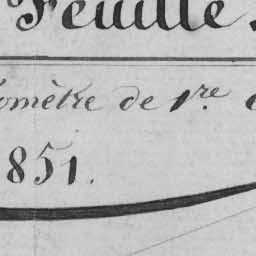 Feuille.
omètre de 1re
851.